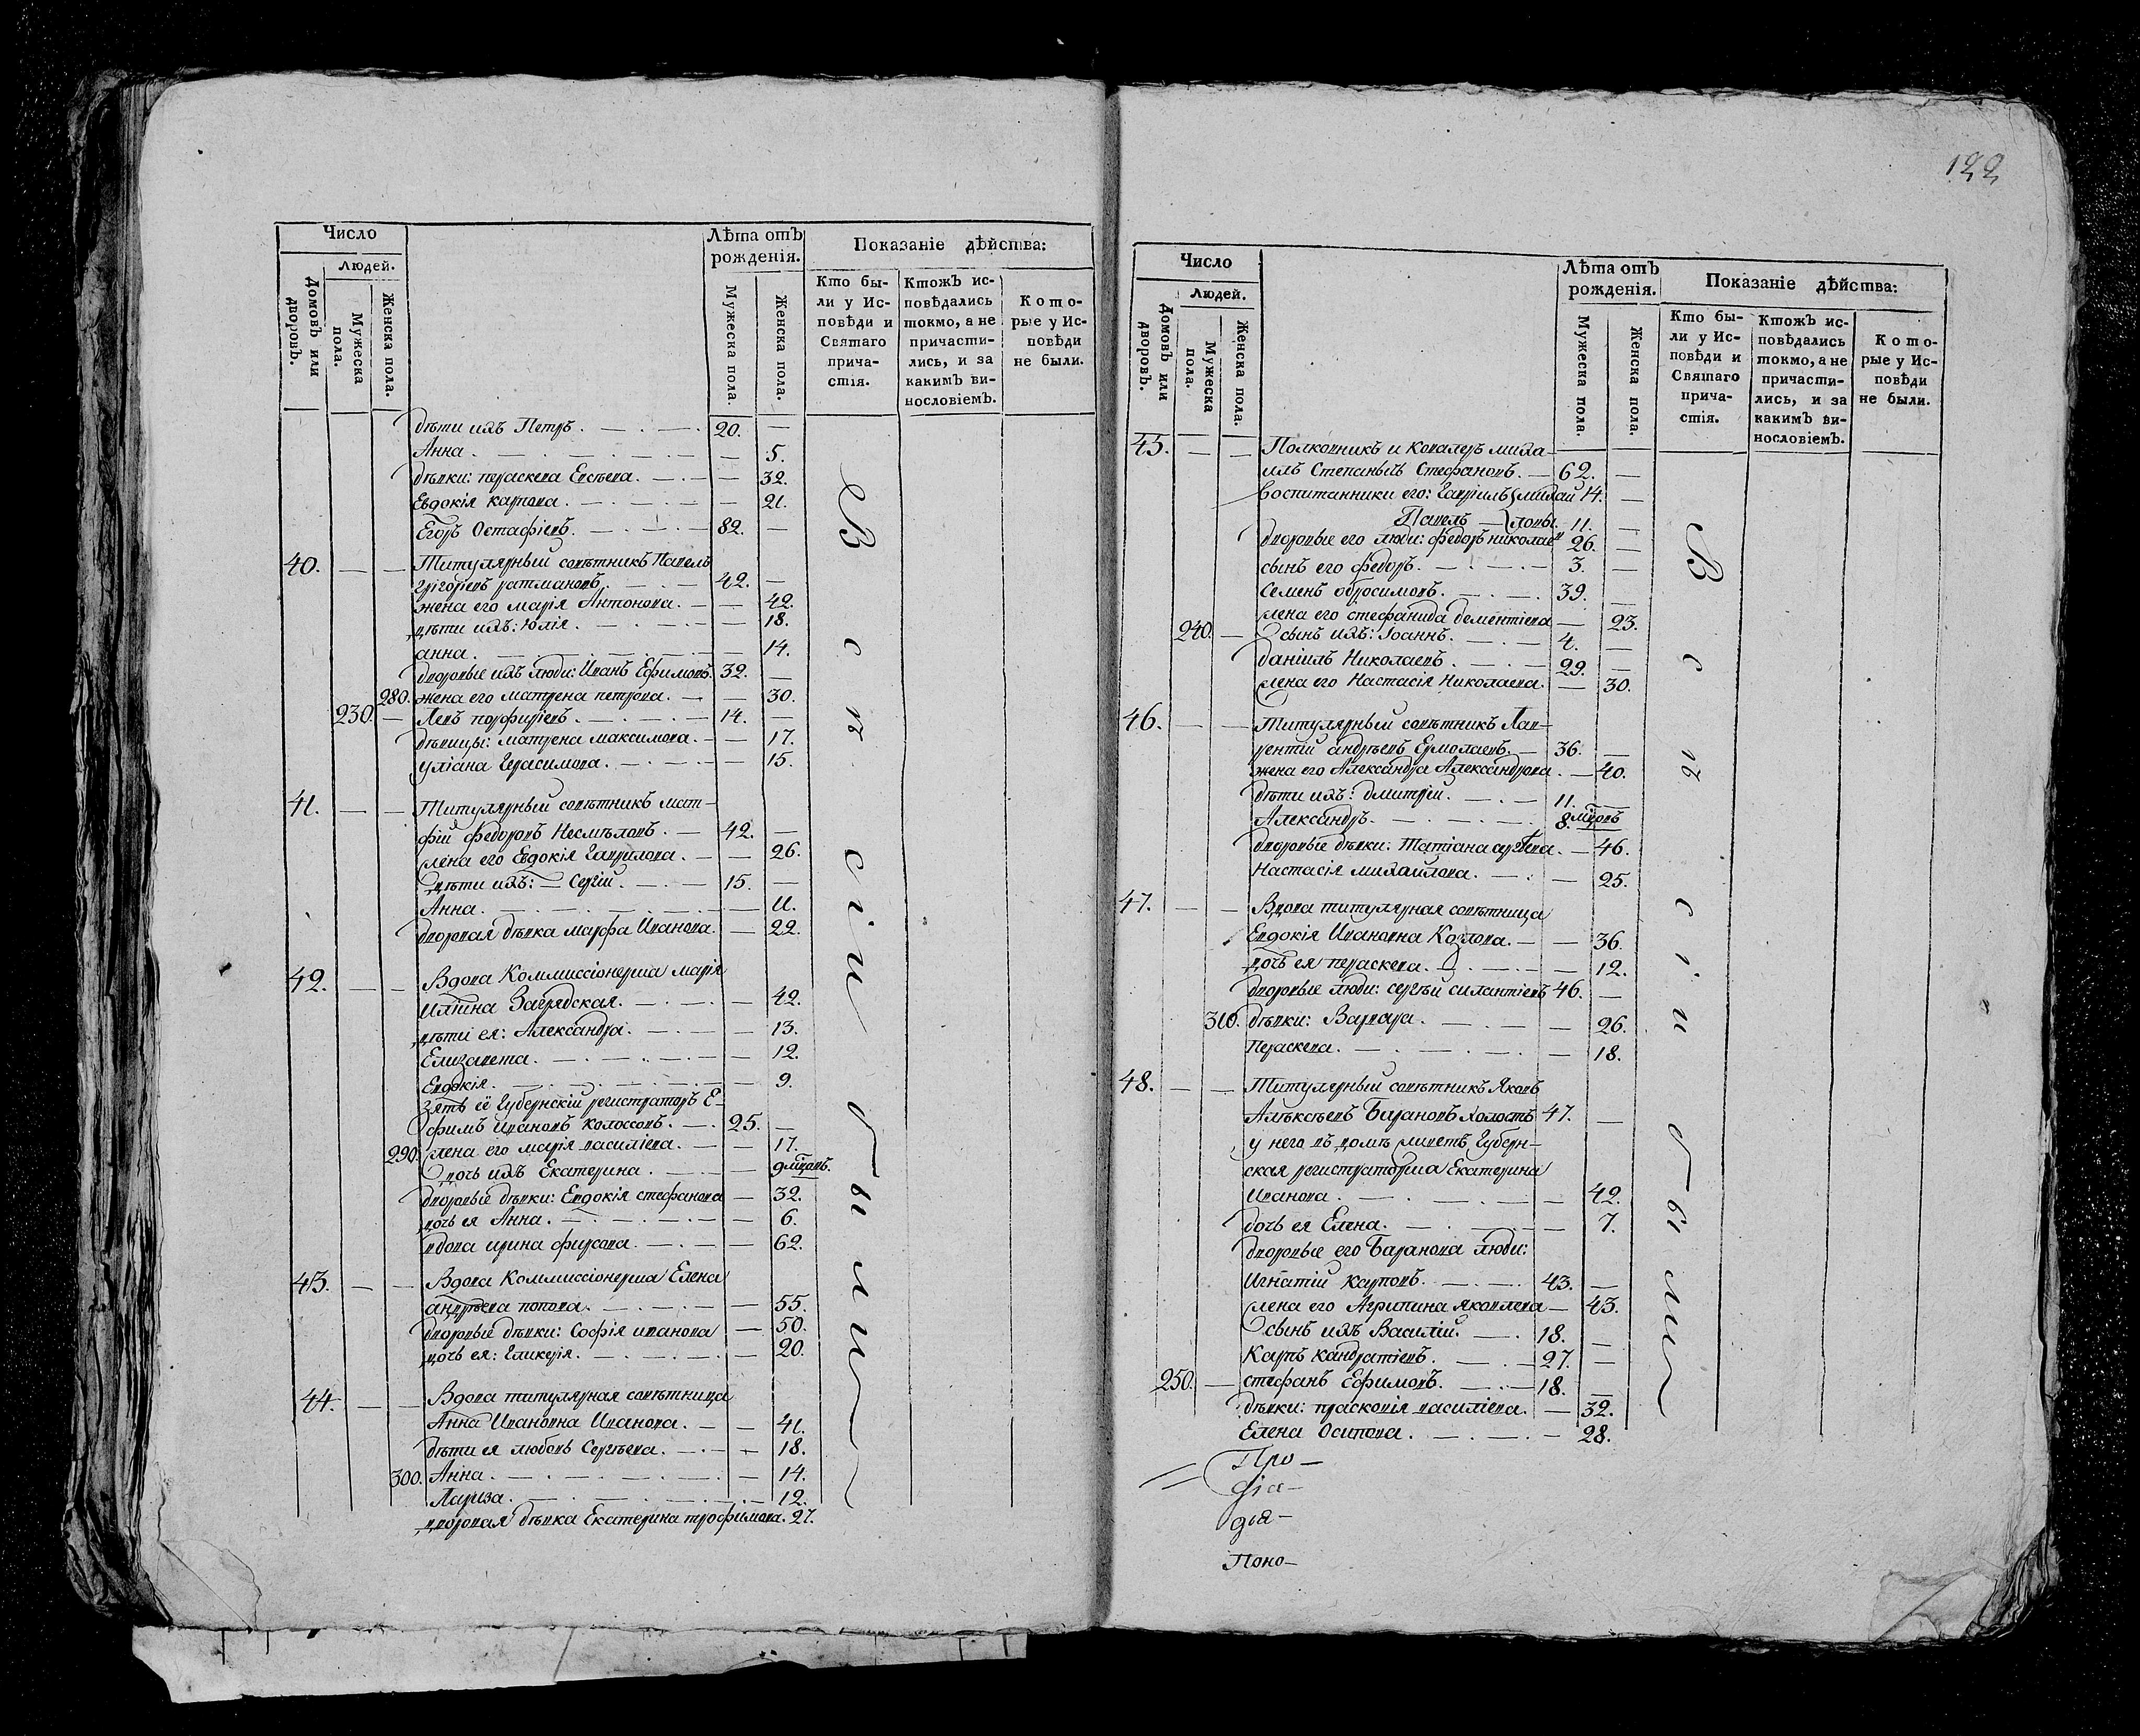 122
Число
Людей.
Домовъ или дворовъ.
Мужеска пола.
Женска пола.
Лѣта отъ рожденія.
Мужеска пола.
Женска пола.
Показаніе дѣйства:
Кто были у Исповѣди и Святаго причастія.
Ктожъ исповѣдались токмо, а не причастились, и за какимъ винословіемъ.
Которые у Исповѣди не были.
дѣти ихъ Петръ. 20. —
Анна. — 5.
дѣвки: параскева Евсѣева. — 32.
Евдокія карпова. — 21.
Егоръ Остафіевъ. 82. —
40. — — Титулярный совѣтникъ Павелъ
григоріевъ ратмановъ. 42. —
жена его марія Антонова. — 42.
дѣти ихъ: Юлія. — 18.
анна. — 14.
дворовые ихъ люди: Иванъ Ефимовъ. 32. —
280. жена его матрена петрова. — 30.
230. — Левъ порфиріевъ. 14. —
дѣвицы: матрена максимова. — 17.
уліана герасимова. — 15.
41. — — Титулярный совѣтникъ мат-
фій федоровъ Несмѣловъ. 42. —
жена его Евдокія гаврилова. — 26.
дѣти ихъ: Сергій. 15. —
Анна. — 11.
дворовая дѣвка марфа Иванова. — 22.
42. — — Вдова Коммиссіонерша марія
илІина Загрядская. — 42.
дѣти ея: Александра. — 13.
Елизавета. — 12.
Евдокія. — 9.
зять её Губернскій регистраторъ Е-
фимъ Ивановъ колоссовъ. 25. —
290. жена его марія василіева. — 17.
дочь ихъ Екатерина. — 9 мцовъ.
дворовые дѣвки: Евдокія стефанова — 32.
дочь ея Анна. — 6.
вдова ирина фирсова. — 62.
43. — — Вдова Коммиссіонерша Елена
андрѣева попова. — 55.
дворовые дѣвки: Софія иванова — 50.
дочь ея: гликерія. — 20.
44. — — Вдова титулярная совѣтница
Анна Ивановна Иванова. — 41.
дѣти ея любовь Сергѣева. — 18.
300. Анна. — 14.
Лариза. — 12.
дворовая дѣвка Екатерина трофимова. 27.
Всѣ сіи были
Число
Людей.
Домовъ или дворовъ.
Мужеска пола.
Женска пола.
Лѣта отъ рожденія.
Мужеска пола.
Женска пола.
Показаніе дѣйства:
Кто были у Исповѣди и Святаго причастія.
Ктожъ исповѣдались токмо, а не причастились, и за какимъ винословіемъ.
Которые у Исповѣди не были.
45. — — Полковникъ и Кавалеръ миха-
илъ Степанычь Стефановъ. 62. —
воспитанники его: гавріилъ михай 14. —
Павелъ — ловы. 11. —
дворовые его люди: федоръ николаевъ 26. —
сынъ его федоръ. 3. —
Семенъ обросимовъ. 39. —
жена его стефанида дементіева — 23.
240. — сынъ ихъ: Іоаннъ. 4. —
даніилъ Николаевъ. 29. —
жена его Настасія Николаева. — 30.
46. — — Титулярный совѣтникъ Лав-
рентій андрѣевъ Ермолаевъ. 36. —
жена его Александра Александрова. — 40.
дѣти ихъ: дмитрій. 11. —
Александръ. 8. мцовъ
дворовые дѣвки: Татіана — 46.
Настасія михаилова. — 25.
47. — — Вдова титулярная совѣтница
Евдокія Ивановна Козлова. — 36.
дочь ея параскева. — 12.
дворовые люди: сергѣй силантіевъ 46. —
310. дѣвки: Варвара. — 26.
Параскева. — 18.
48. — — Титулярный совѣтникъ Яковъ
Алѣксѣевъ Барановъ холостъ 47. —
у него въ домѣ живетъ Губерн-
ская регистраторша Екатерина
Иванова. — 42.
дочь ея Елена. — 7.
дворовые его Баранова люди:
Игнатій карповъ. 43. —
жена его Агрипина яковлева — 43.
сынъ ихъ Василій. 18. —
Карпъ кандратіевъ. 27. —
250. — стефанъ Ефимовъ. 18. —
дѣвки: прасковія василіева. — 32.
Елена Осипова. — 28.
Всѣ сіи были
Про-
діа-
дія-
Поно-